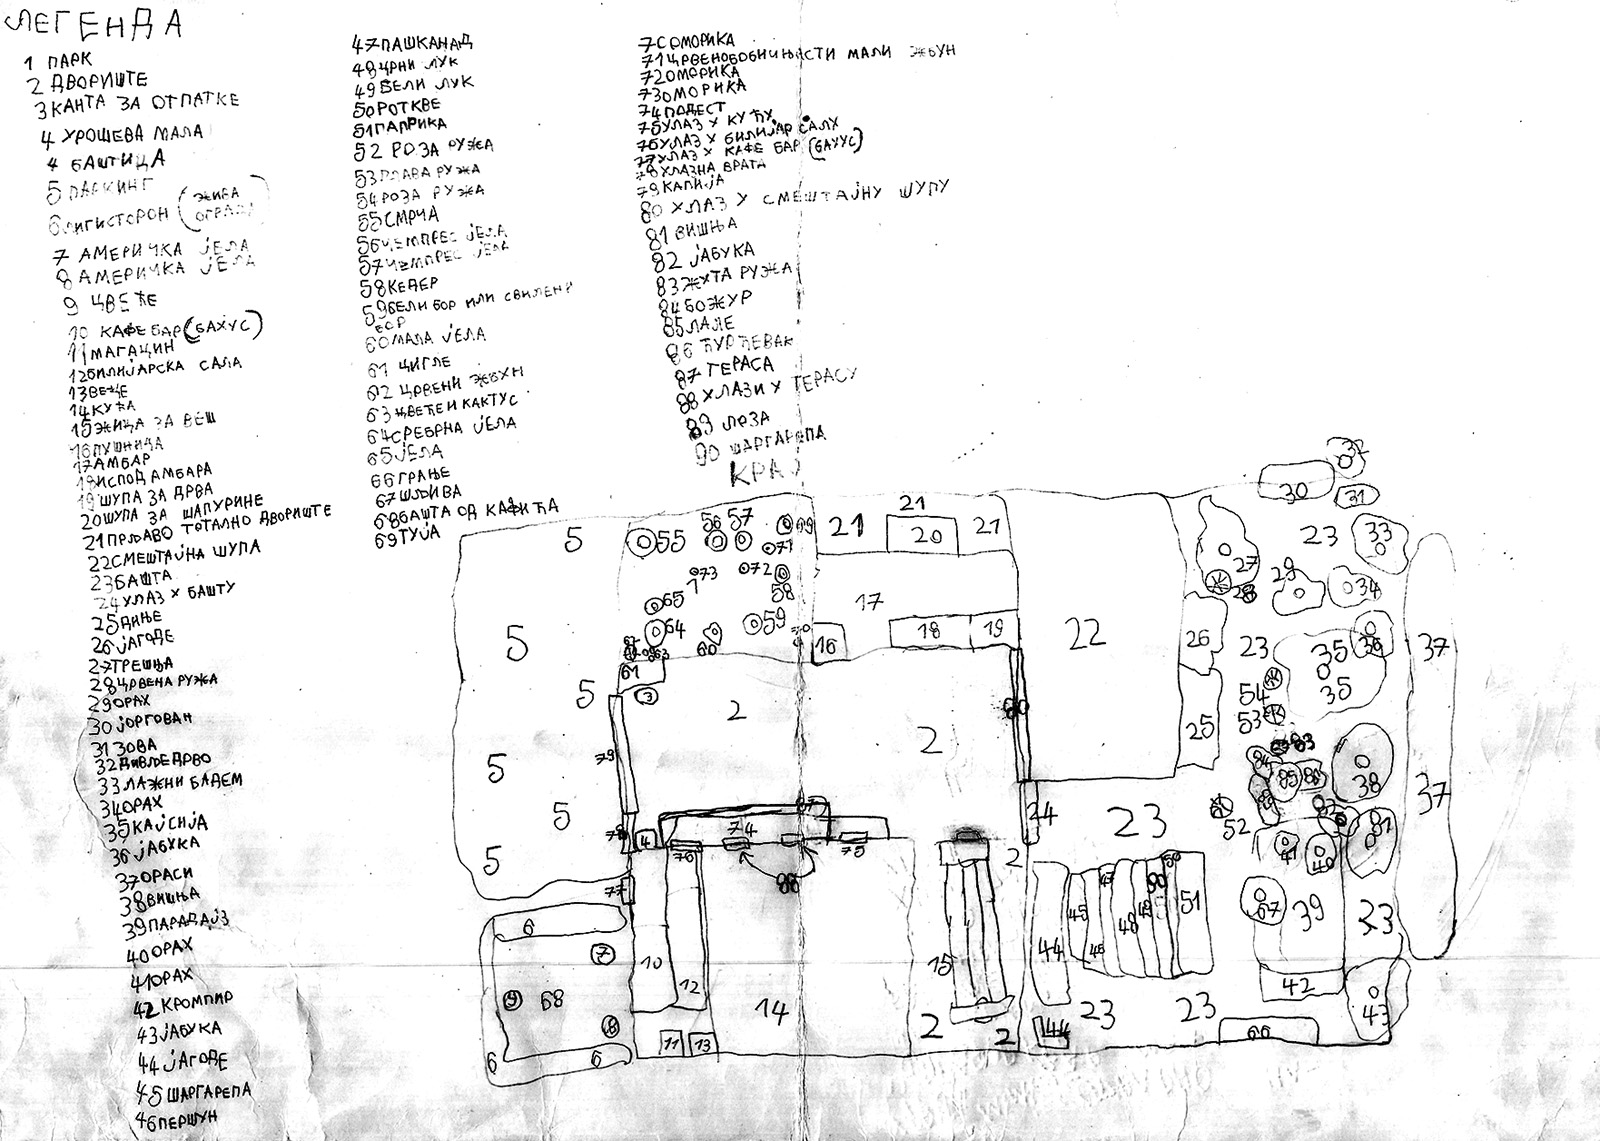 ЛЕГЕНДА
1 ПАРК
2 ДВОРИШТЕ
3 КАНТА ЗА ОТПАТКЕ
4 УРОШЕВА МАЛА
4 БАШТИЦА
5 ПАРКИНГ
6 ЛИГИСТОРОН (ЖИВА
ОГРАДА)
7 АМЕРИЧКА ЈЕЛА
8 АМЕРИЧКА ЈЕЛА
9 ЦВЕЋЕ
10 КАФЕ БАР (БАХУС)
11 МАГАЦИН
12 БИЛИЈАРСКА САЛА
13 ВЕЦЕ
14 КУЋА
15 ЖИЦА ЗА ВЕШ
16 ПУШНИЦА
17 АМБАР
18 ИСПОД АМБАРА
19 ШУПА ЗА ДРВА
20 ШУПА ЗА ШАПУРИНЕ
21 ПРЉАВО ТОТАЛНО ДВОРИШТЕ
22 СМЕШТАЈНА ШУПА
23 БАШТА
24 УЛАЗ У БАШТУ
25 ДИЊЕ
26 ЈАГОДЕ
27 ТРЕШЊА
28 ЦРВЕНА РУЖА
29 ОРАХ
30 ЈОРГОВАН
31 ЗОВА
32 ДИВЉЕ ДРВО
33 ЛАЖНИ БАДЕМ
34 ОРАХ
35 КАЈСИЈА
36 ЈАБУКА
37 ОРАСИ
38 ВИШЊА
39 ПАРАДАЈЗ
40 ОРАХ
41 ОРАХ
42 КРОМПИР
43 ЈАБУКА
44 ЈАГОДЕ
45 ШАРГАРЕПА
46 ПЕРШУН
47 ПАШКАНАД
48 ЦРНИ ЛУК
49 БЕЛИ ЛУК
50 РОТКВЕ
51 ПАПРИКА
52 РОЗА РУЖА
53 ПЛАВА РУЖА
54 РОЗА РУЖА
55 СМРЧА
56 ЧЕМПРЕС ЈЕЛА
57 ЧЕМПРЕС ЈЕЛА
58 КЕДЕР
59 БЕЛИ БОР ИЛИ СВИЛЕНИ
БОР
60 МАЛА ЈЕЛА
61 ЦИГЛЕ
62 ЦРВЕНИ ЖБУН
63 ЦВЕЋЕ И КАКТУС
64 СРЕБРНА ЈЕЛА
65 ЈЕЛА
66 ГРАЊЕ
67 ШЉИВА
68 БАШТА ОД КАФИЋА
69 ТУЈА
7С ОМОРИКА
71 ЦРВЕНОБОБИЧЊАСТИ МАЛИ ЖБУН
72 ОМОРИКА
73 ОМОРИКА
74 ПОДЕСТ
75 УЛАЗ У КУЋУ
76 УЛАЗ У БИЛИЈАР САЛУ
77 УЛАЗ У КАФЕ БАР (БАХУС)
78 УЛАЗНА ВРАТА
79 КАПИЈА
80 УЛАЗ У СМЕШТАЈНУ ШУПУ
81 ВИШЊА
82 ЈАБУКА
83 ЖУТА РУЖА
84 БОЖУР
85 ЛАЛЕ
86 ЂУРЂЕВАК
87 ТЕРАСА
88 УЛАЗИ У ТЕРАСУ
89 ЛОЗА
90 ШАРГАРЕПА
КРАЈ
32
30 31
21
5 55 56 57 69 21 20 21 23 33
71
73 72 27 29
1 58 28 34
65 17
64 59 22 26
5 60 16 18 19 23 35 36 37
61
5 3 54 35
2 80 53 25
2
79 83
5 84 85 86 38 37
5 87 24 23 52 82 81
78 4 74 75
5 76 2 41 40
88 47 50
77 45 48 49 90 51 67 39 23
6
7 10 15 44 46
9 68 12 42
8 14 2 23 23 43
6 6 11 13 2 44 66